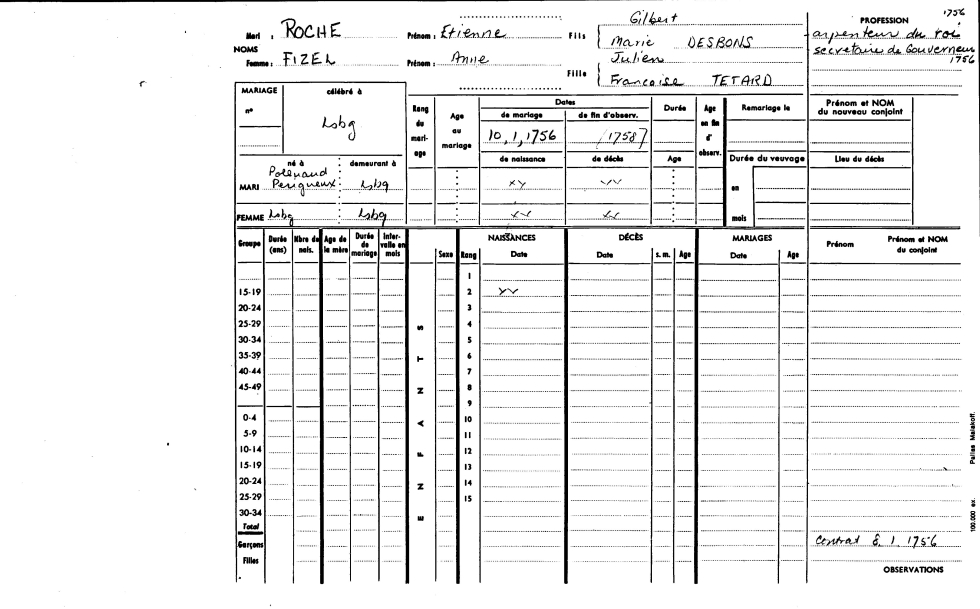 1756
Gilbert
PROFESSION
Mari : ROCHE Prénom : Etienne Fils Marie DESBONS arpenteur du roi
NOMS secretaire de Gouverneur
Femme : FIZEL Prénom : Anne Julien 1756
Fille Francoise TETARD
MARIAGE célébré à
n° Lsbg
Rang du mari-age
Age au mariage
Dates
de mariage de fin d'observ.
10, 1, 1756 (1758)
Durée
Age en fin d'observ.
Remariage le
Prénom et NOM
du nouveau conjoint
né à demeurant à
de naissance de décès Age Durée du veuvage Lieu du décès
MARI Perigueux Lsbg xy
en
FEMME Lsbg Lsbg
mois
Groupe Durée (ans) Nbre de nais. Age de la mère Durée de mariage Inter-valle en mois
ENFANTS
Sexe Rang
NAISSANCES
Date
DÉCÈS
Date s.m. Age
MARIAGES
Date Age
Prénom Prénom et NOM
du conjoint
1
15-19 2
20-24 3
25-29 4
30-34 5
35-39 6
40-44 7
45-49 8
9
0-4 10
5-9 11
10-14 12
15-19 13
20-24 14
25-29 15
30-34
Total
Garçons Contrat 8. 1. 1756
Filles
OBSERVATIONS
100.000 ex. Pallas Malakoff.